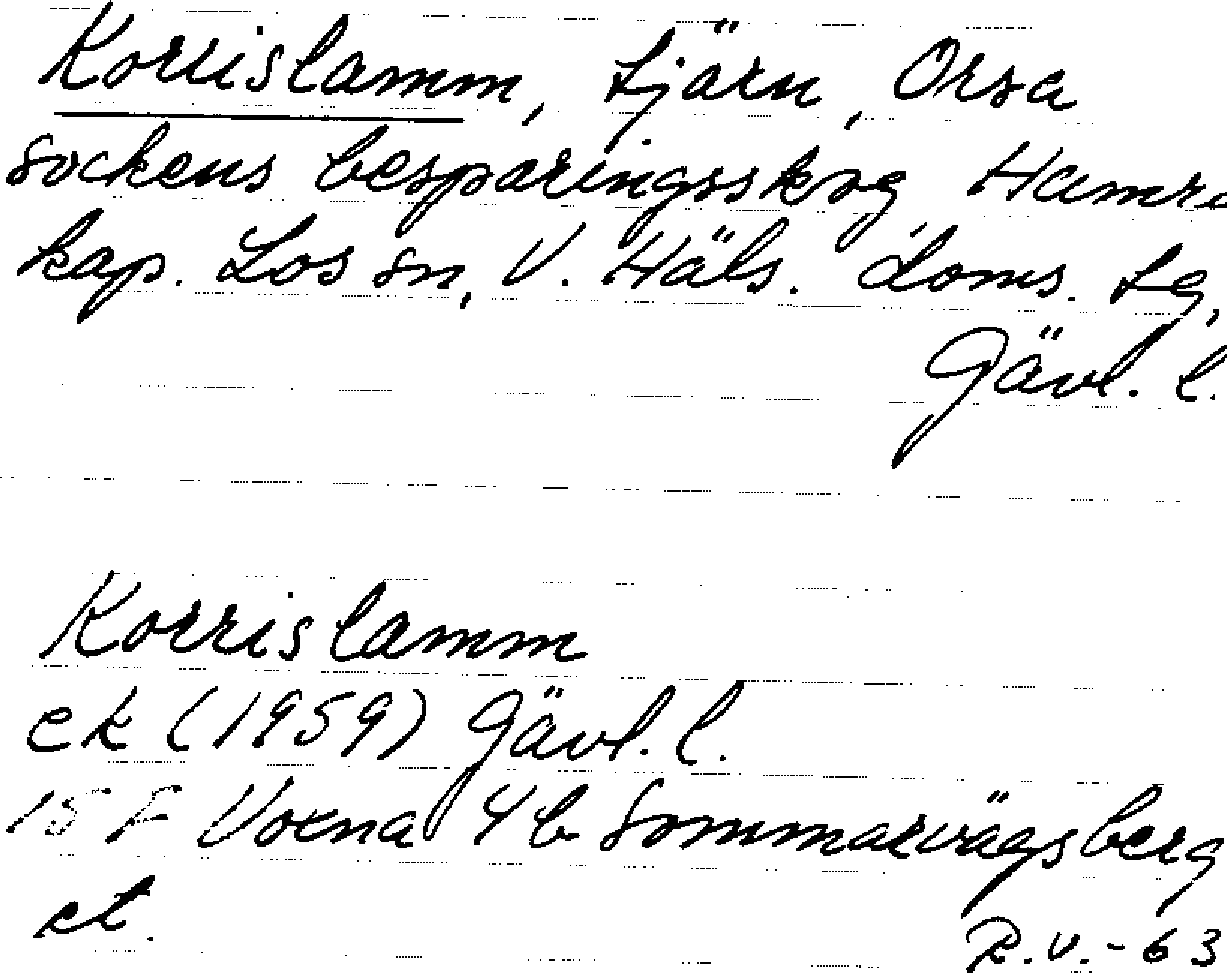 Korrislamm, tjärn, Orsa
sockens besparingsskog, Hamra
kap. Los sn, V. Häls. doms. tg,
Gävl. l.
Korrislamm
ek (1959) Gävl. l.
15 F Voxna 4 b Sommarvägsberg
et.
R.V.-63